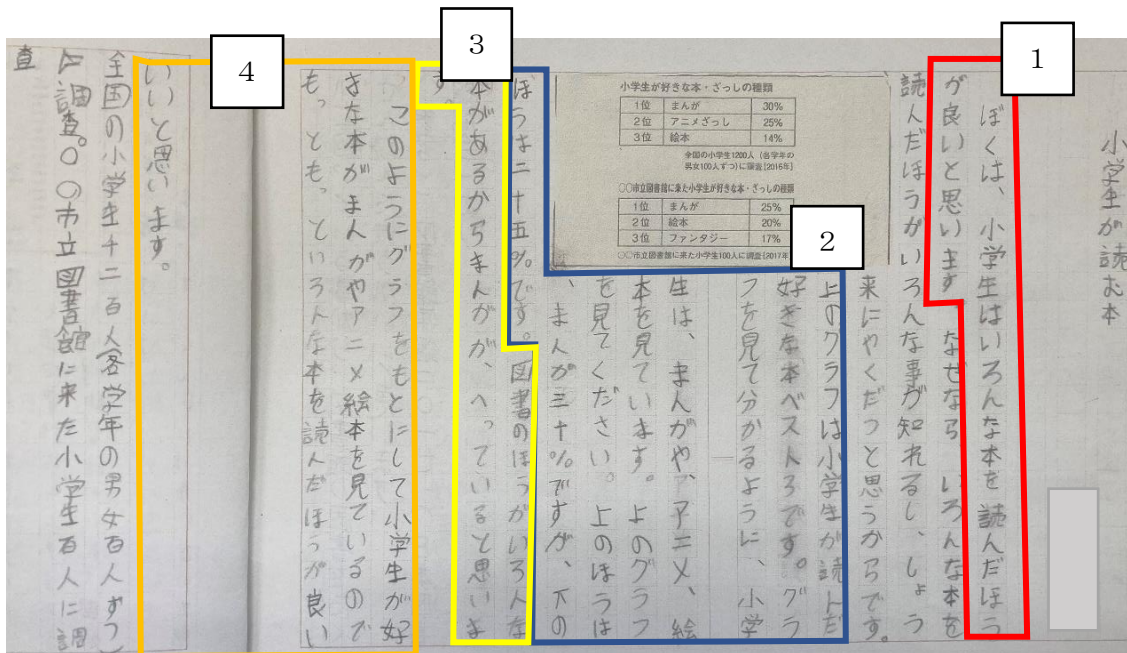 小学生が読む本
1
ぼくは、小学生はいろんな本を読んだほう
が良いと思います なぜなら、いろんな本を
読んだほうがいろんな事が知れるし、しょう
来にやくだつと思うからです。
小学生が好きな本・ざっしの種類
1位 まんが 30%
2位 アニメざっし 25%
3位 絵本 14%
全国の小学生1200人（各学年の
男女100人ずつ）に調査[2016年]
〇〇市立図書館に来た小学生が好きな本・ざっしの種類
1位 まんが 25%
2位 絵本 20%
3位 ファンタジー 17%
〇〇市立図書館に来た小学生100人に調査[2017年
2
上のグラフは小学生が読んだ
好きな本ベスト3です。グラ
フを見て分かるように、小学
生は、まんがや、アニメ、絵
本を見ています。上のグラフ
を見てください。上のほうは
、まんが三十%ですが、下の
ほうは二十五%です。図書のほうがいろんな
3
本があるからまんがが、へっていると思いま
す。
4
このようにグラフをもとにして小学生が好
きな本がまんがやアニメ絵本を見ているので
もっともっといろんな本を読んだほうが良い
いいと思います。
全国の小学生千二百人客学年の男女百人ずつ
に調査。〇〇市立図書館に来た小学生百人に調
査